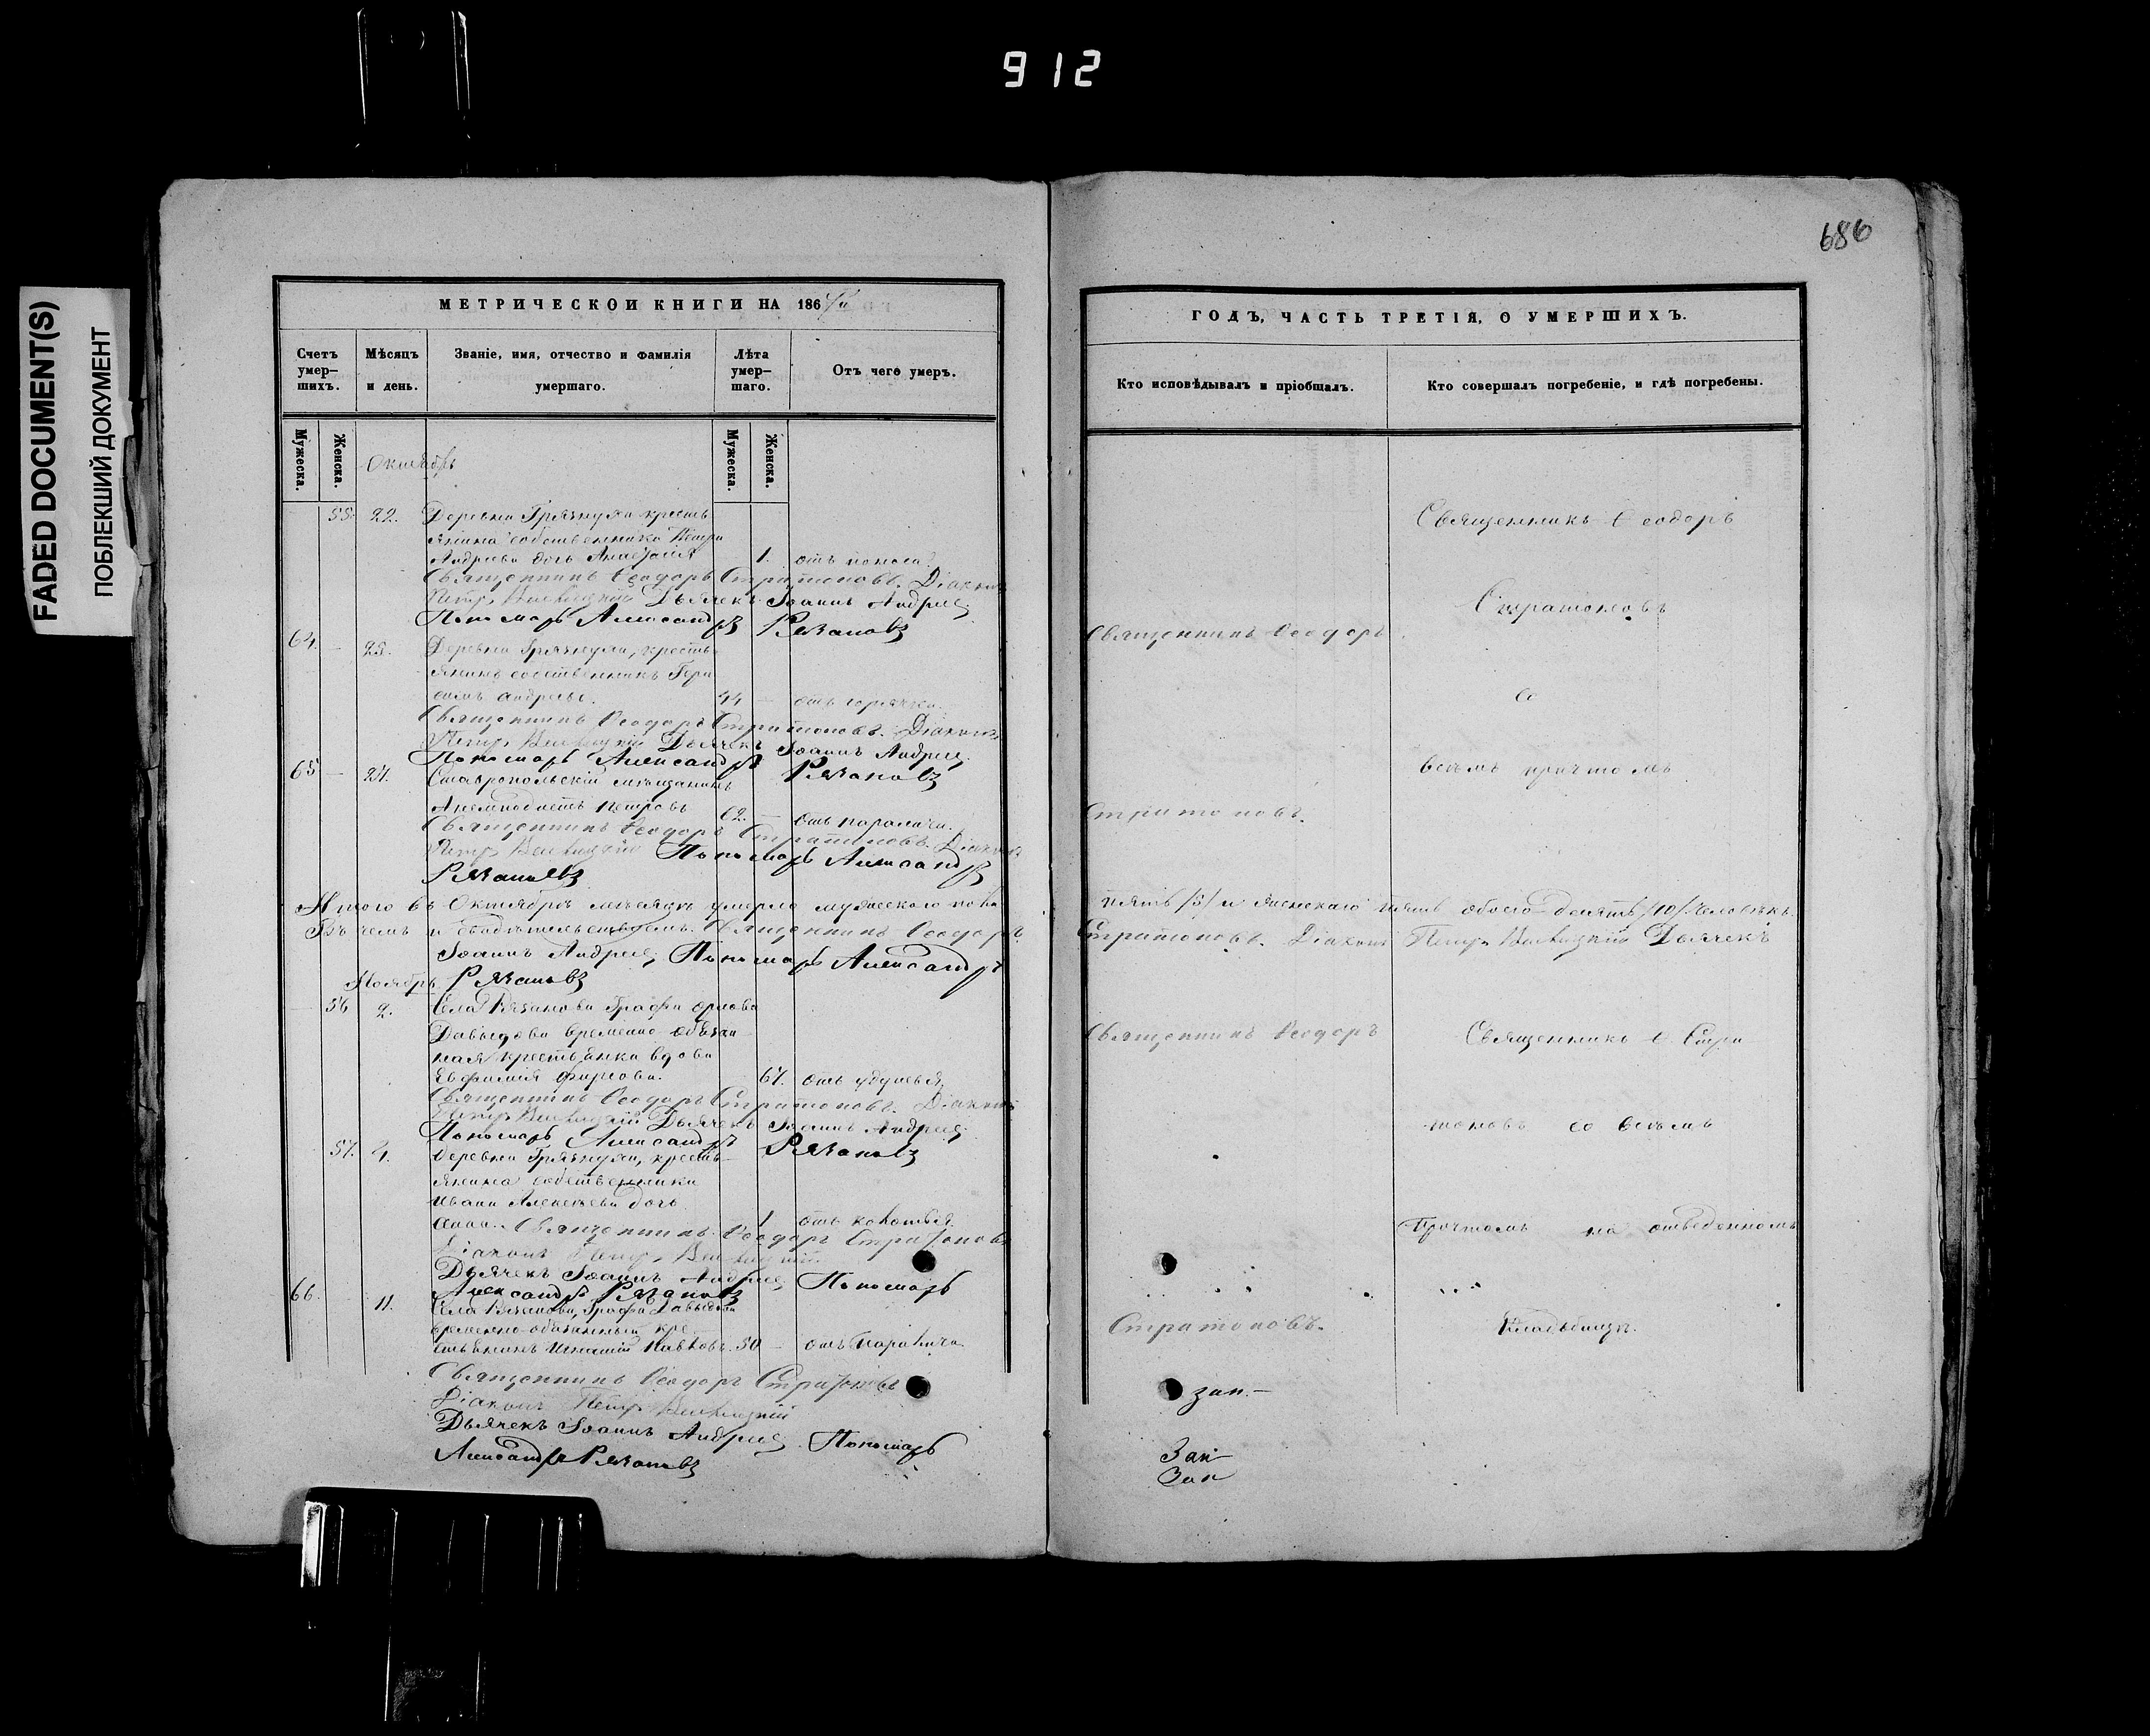 912
FADED DOCUMENT(S)
ПОБЛЕКШИЙ ДОКУМЕНТ
686
МЕТРИЧЕСКОЙ КНИГИ НА 186
Счетъ умер-шихъ.
Мѣсяцъ и день.
Званіе, имя, отчество и фамилія умершаго.
Лѣта умер-шаго.
Отъ чего умеръ.
Мужеска.
Женска.
Мужеска.
Женска.
Октябрь
55. 22. Деревни Грязнухи кресть-
янина собственника Петра
Андреева дочь Анастасія 1. отъ поноса.
Священникъ Ѳеодоръ Стратоновъ. Діаконъ
Петръ Дьячекъ Іоаннъ Андреев
Пономарь Александръ Рязановъ
64. 25. Деревни Грязнухи, кресть-
янинъ собственникъ Гера
симъ Андреевъ. 44 отъ горячки.
Священникъ Ѳеодоръ Стратоновъ. Діаконъ
Петръ Дьячекъ Іоаннъ Андреев
Пономарь Александръ Рязановъ
65 27. Ставропольскій мѣщанинъ
Анемподистъ Петровъ 62. отъ паралича.
Священникъ Ѳеодоръ Стратоновъ. Діаконъ
Петръ Пономарь Александръ
Рязановъ
Итого въ Октябрѣ мѣсяцѣ умерло мужескаго пола
Въ чемъ и свидѣтельствуемъ. Священникъ Ѳеодоръ
Іоаннъ Андреев Пономарь Александръ
Ноябрь Рязановъ
56 2. Села Рязанова Графа Орлова
Давыдова временно-обязан-
ная крестьянка вдова
Евфимія Фирсова. 67. отъ удушья.
Священникъ Ѳеодоръ Стратоновъ. Діаконъ
Петръ Дьячекъ Іоаннъ Андреев
Пономарь Александръ Рязановъ
57. 4. Деревни Грязнухи, кресть-
янина собственника
Ивана Алексѣева дочь
Анна. 1 отъ колотья.
Священникъ Ѳеодоръ Стратоновъ
Діаконъ Петръ
Дьячекъ Іоаннъ Андреев Пономарь
Александръ Рязановъ
66. 11. Села Рязанова, Графа Давыдова
временно-обязанный кре-
стьянинъ Игнатій Павловъ. 50 отъ паралича.
Священникъ Ѳеодоръ Стратоновъ
Діаконъ Петръ
Дьячекъ Іоаннъ Андреев Пономарь
Александръ Рязановъ
ГОДЪ, ЧАСТЬ ТРЕТІЯ, О УМЕРШИХЪ.
Кто исповѣдывалъ и пріобщалъ.
Кто совершалъ погребеніе, и гдѣ погребены.
Священникъ Ѳеодоръ
Стратоновъ
Священникъ Ѳеодоръ
со
всѣмъ причтомъ
Стратоновъ.
пять /5/ и женскаго пять обоего десять /10/ человѣкъ.
Стратоновъ. Діаконъ Петръ Дьячекъ
Священникъ Ѳеодоръ
Священникъ Ѳ. Стра-
тоновъ со всѣмъ
причтомъ на отведенномъ
Стратоновъ.
кладбищѣ.
зап.
Зап
Зап